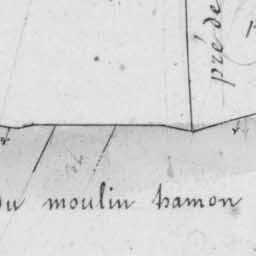 pré de
du moulin hamon